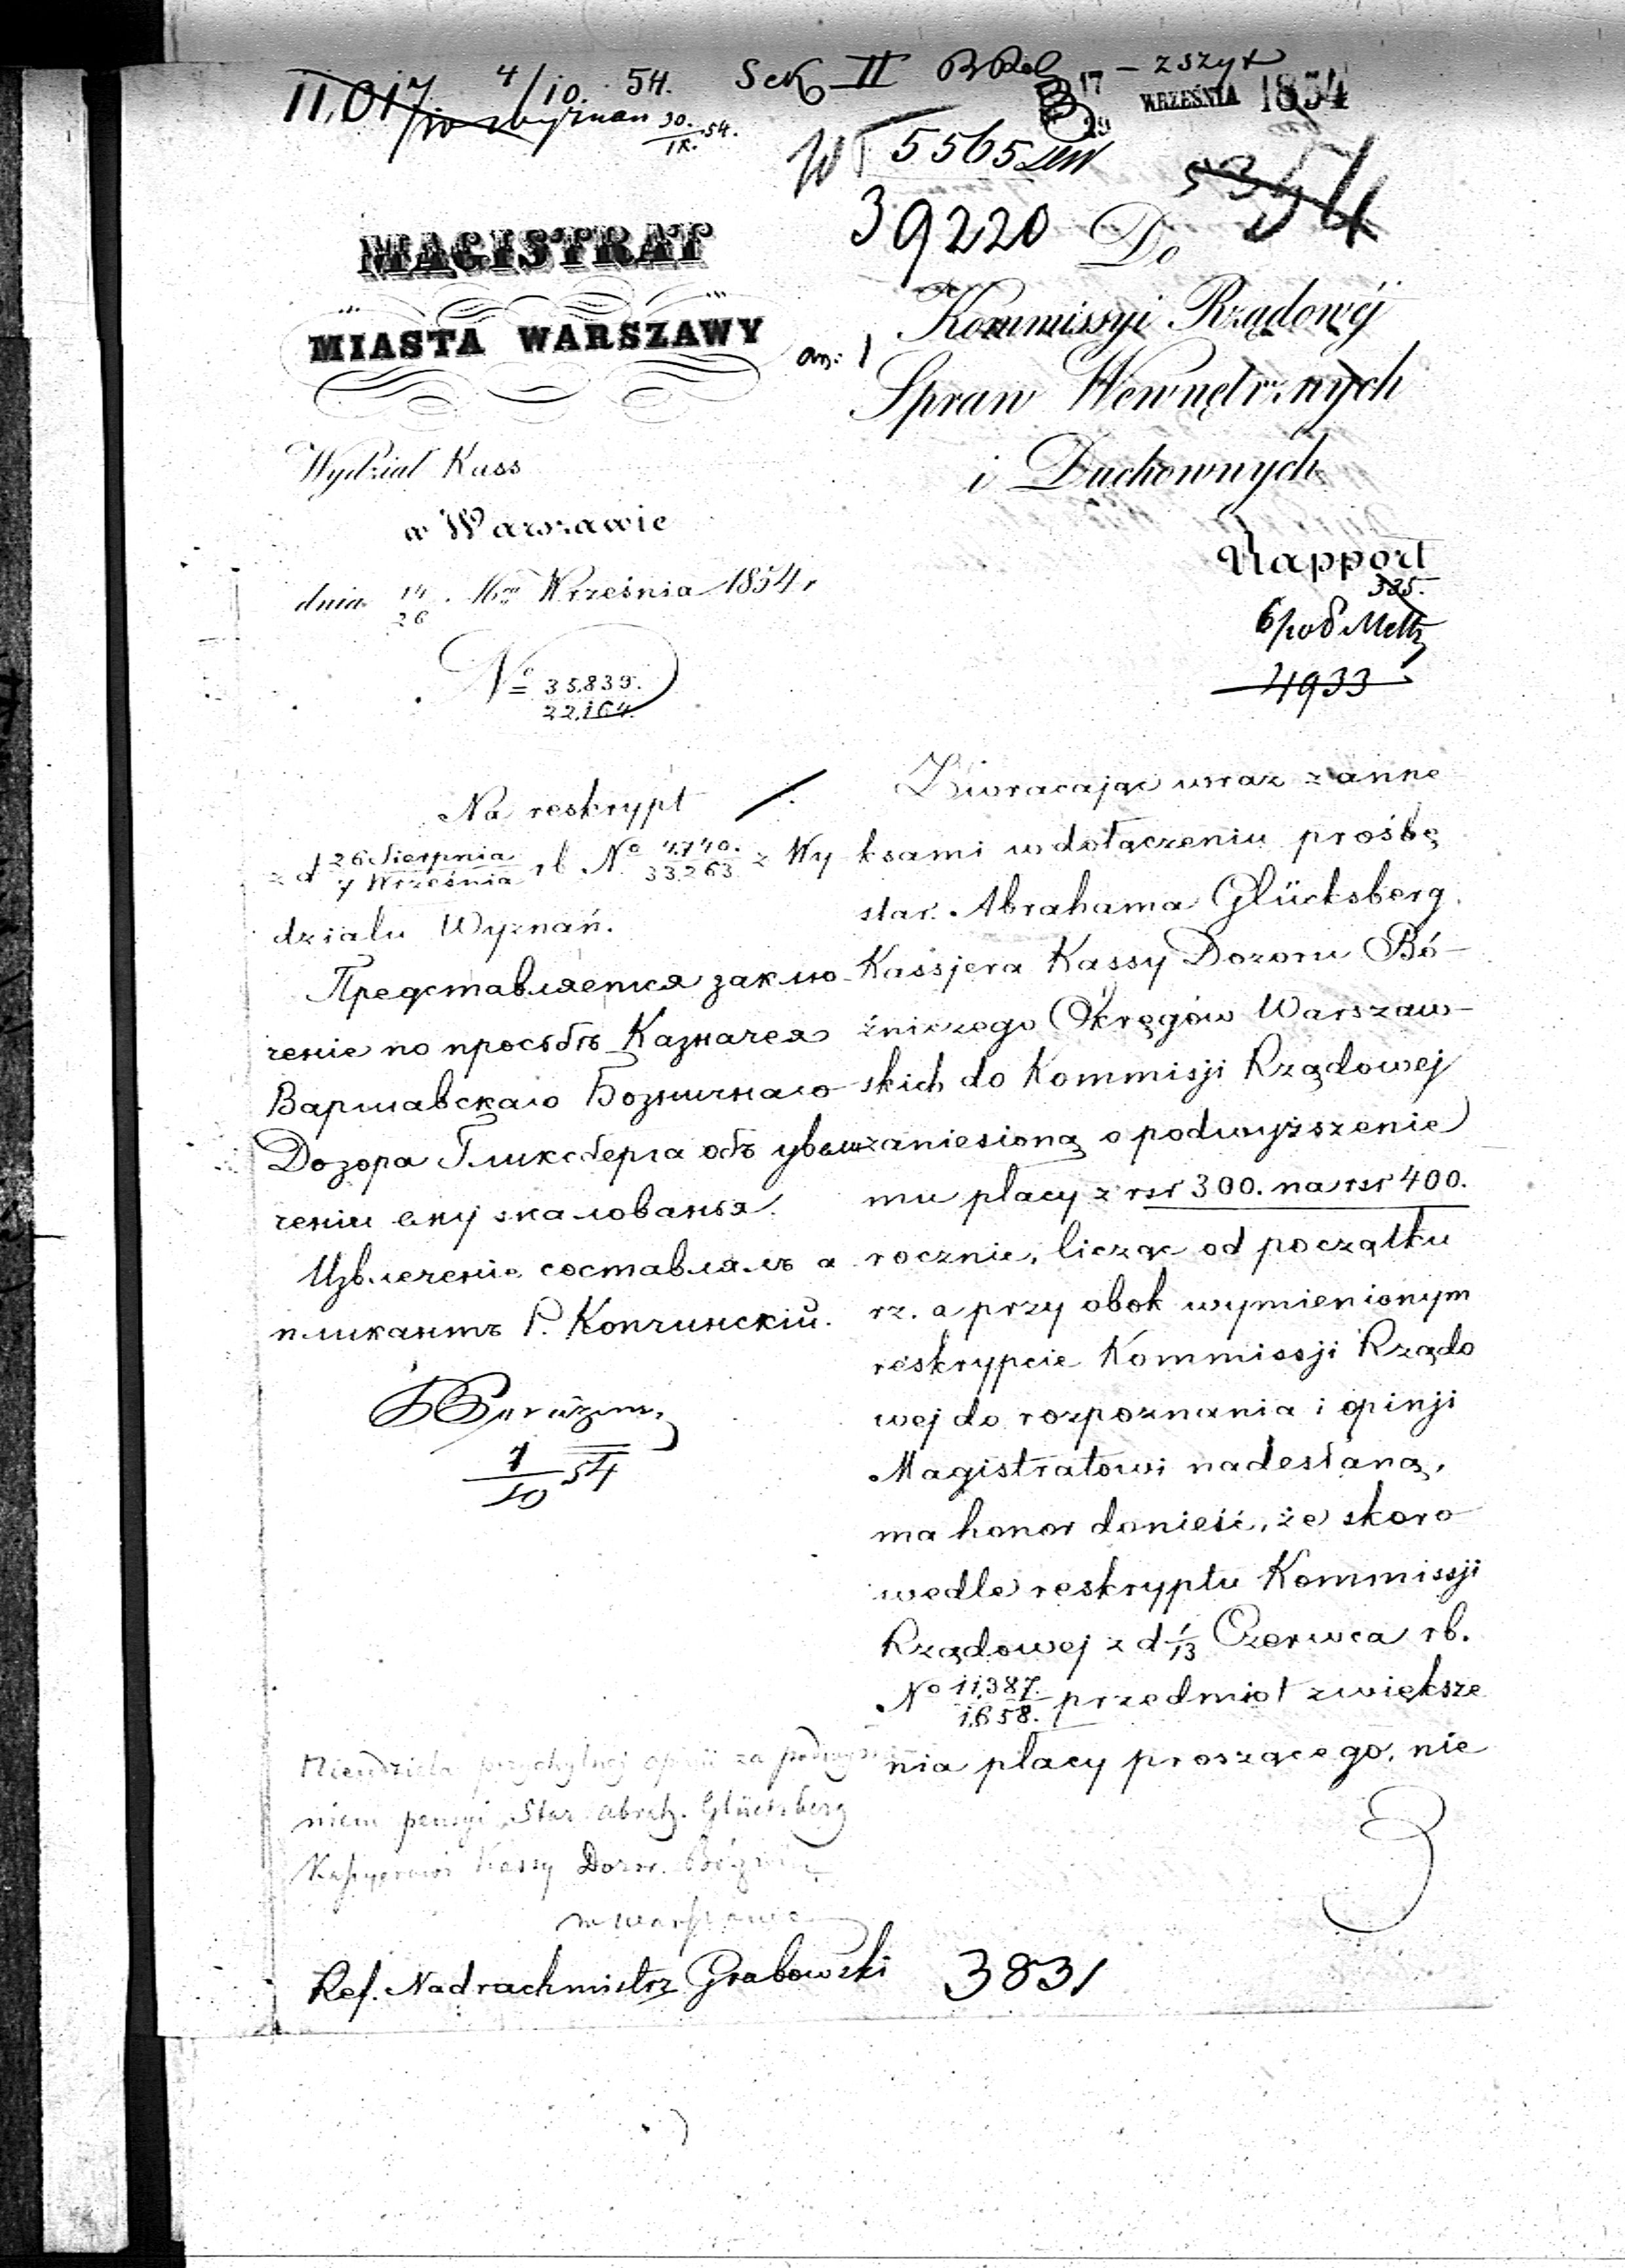 11,017 4/10. 54. Sek II 17 – zszyt
30./IX. 54. WRZEŚNIA 1854
5565
39220 Do 5354
MAGISTRAT
MIASTA WARSZAWY
Kommissyi Rządowéj
an: 1
Spraw Wewnętrznych
i Duchownych
Wydział Kass
w Warszawie
Rapport
dnia 14/26 Września 1854 r
335.
4933
No 35.839./22.164.
Na reskrypt
z d 26 Sierpnia/7 Września rb. No 4.740./33.263 z Wy
działu Wyznań.
Представляется заклю
чение по просьбѣ Казначея
Варшавскаго Божничнаго
Дозора Гликсберга объ увели
ченіи ему жалованья.
Извлеченіе составлялъ а
пликантъ Р. Копчинскій.
1/10 54
Zwracając wraz z anne
ksami w dołączeniu prośbę
star. Abrahama Glücksberg
Kassjera Kassy Dozoru Bó-
źniczego Okręgów Warszaw-
skich do Kommisji Rządowej
zaniesioną o podwyższenie
mu płacy z rsr 300. na rsr 400.
rocznie, licząc od początku
rz. a przy obok wymienionym
reskrypcie Kommissji Rządo
wej do rozpoznania i opinji
Magistratowi nadesłaną,
ma honor donieść, że skoro
wedle reskryptu Kommissji
Rządowej z d 1/13 Czerwca rb.
No 11,387./1,658. przedmiot zwiększe
nia płacy proszącego, nie
Nieudziela przychylnej opinji za podwyższe
niem pensyi Star. Abrah. Glücksberg
Kassyerowi Kassy Dozoru
w Warszawie
Ref. Nadrachmistrz Grabowski 3831